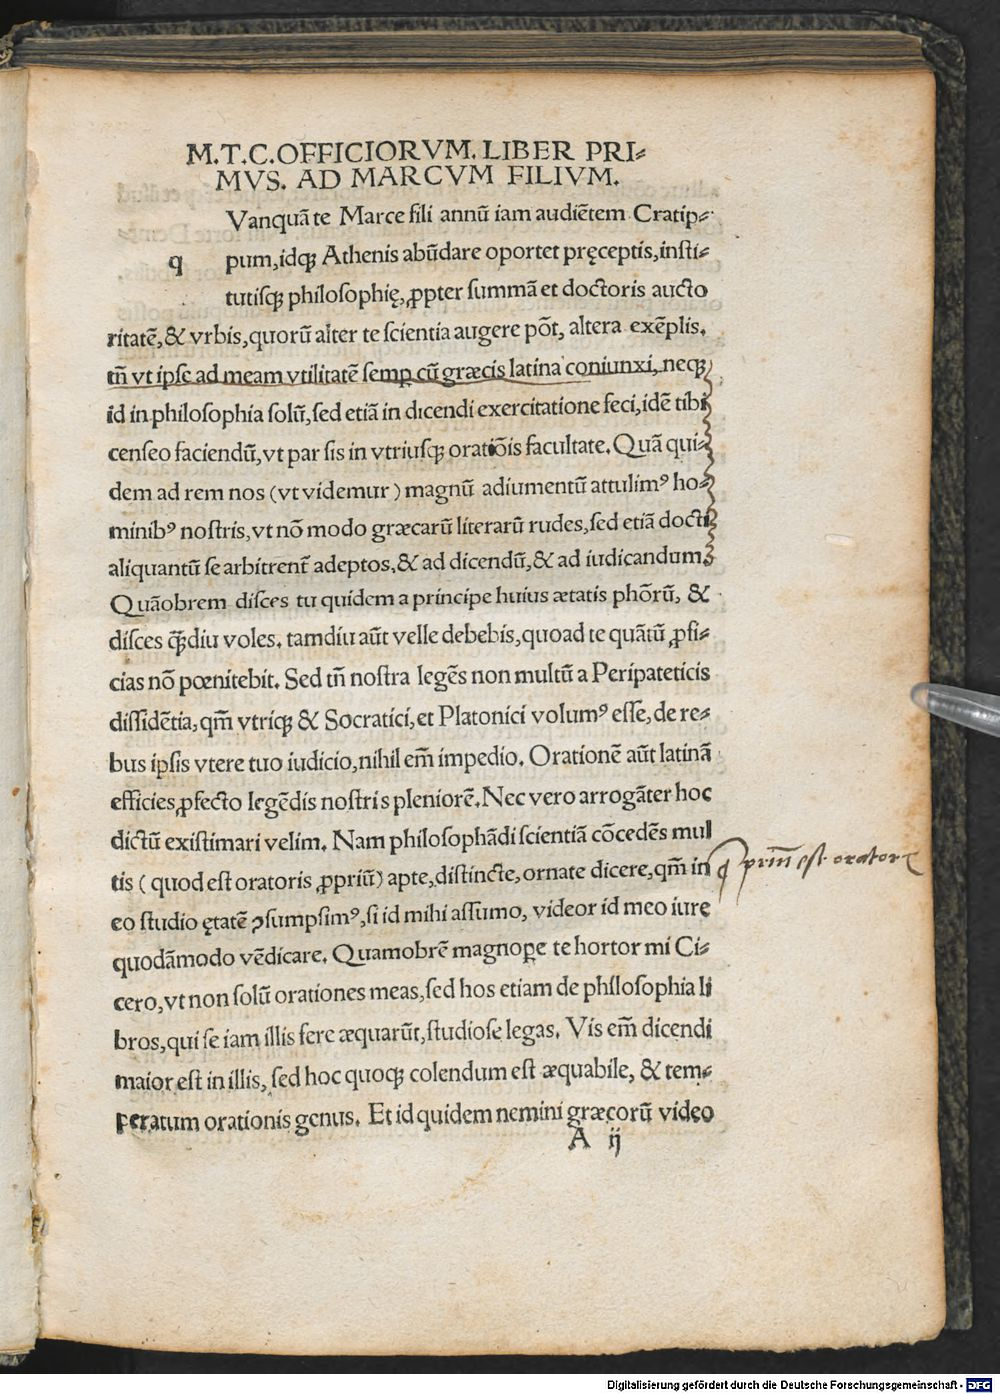 M.T.C.OFFICIORVM. LIBER PRI⸗
MVS. AD MARCVM FILIVM.
Vanquā te Marce fili annū iam audiētem Cratip⸗
q pum,idqꝫ Athenis abūdare oportet pręceptis,insti⸗
tutisqꝫ philosophię,ꝓpter summā et doctoris aucto
ritatē,& vrbis,quorū alter te scientia augere põt, altera exēplis.
tñ vt ipse ad meam vtilitatē semꝑ cū græcis latina coniunxi, neqꝫ
id in philosophia solū,sed etiā in dicendi exercitatione feci,idē tibi
censeo faciendū,vt par sis in vtriusqꝫ oratiõis facultate. Quā qui⸗
dem ad rem nos (vt videmur) magnū adiumentū attulimꝰ ho⸗
minibꝰ nostris,vt nō modo græcarū literarū rudes,sed etiā docti
aliquantū se arbitrent᷑ adeptos,& ad dicendū,& ad iudicandum.
Quāobrem disces tu quidem a principe huius ætatis phõrū, &
disces q̄diu voles. tamdiu aūt velle debebis,quoad te quātū ꝓfi⸗
cias nō pœnitebit. Sed tñ nostra legēs non multū a Peripateticis
dissidētia,qm̄ vtriqꝫ & Socratici,et Platonici volumꝰ esse,de re⸗
bus ipsis vtere tuo iudicio,nihil em̄ impedio. Orationē aūt latinā
efficies,ꝓfecto legēdis nostris pleniorē. Nec vero arrogāter hoc
dictū existimari velim. Nam philosophādi scientiā cōcedēs mul
tis (quod est oratoris ꝓpriū) apte,distincte,ornate dicere,qm̄ in
eo studio ętatē ꝯsumpsimꝰ,si id mihi assumo, videor id meo iure
quodāmodo vēdicare. Quamobrē magnoꝑe te hortor mi Ci⸗
cero,vt non solū orationes meas,sed hos etiam de philosophia li
bros,qui se iam illis fere æquarūt,studiose legas. Vis em̄ dicendi
maior est in illis, sed hoc quoqꝫ colendum est æquabile, & tem⸗
peratum orationis genus. Et id quidem nemini græcorū video
A ij
est orator
Digitalisierung gefördert durch die Deutsche Forschungsgemeinschaft - DFG